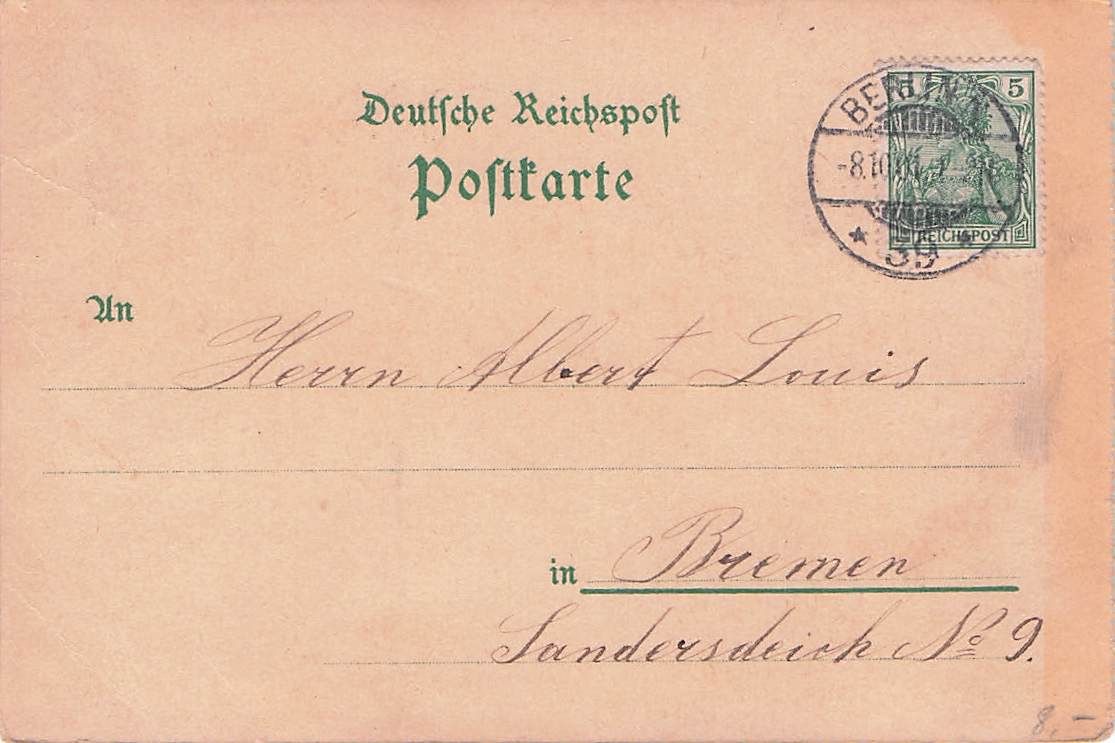 Deutsche Reichspost
Postkarte
5
BERLIN N
-8.10.01.
* 39 *
REICHSPOST
An
Herrn Albert Louis
in Bremen
Sandersdeich No 9.
8,-